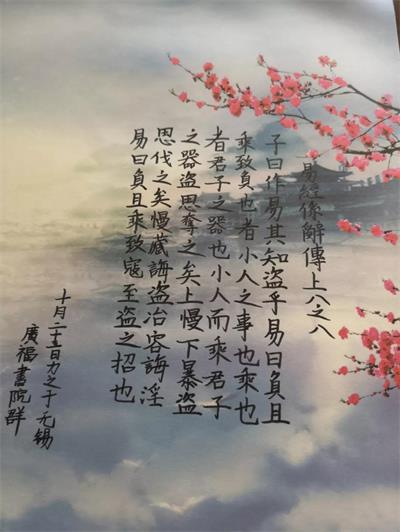 易經係辭傳上八之八
子曰作易其知盗乎易曰負且
乘致負也者小人之事也乘也
者君子之器也小人而乘君子
之器盗思奪之矣上慢下暴盗
思伐之矣慢藏誨盗冶容誨淫
易曰負且乘致寇至盗之招也
十月二十五日力之于无锡
廣福書院群